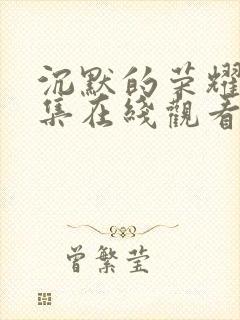 沉默的荣耀
集在綫觀看
曾繁莹